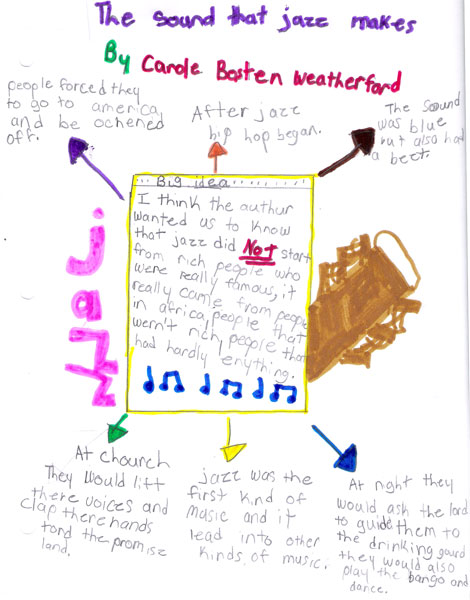 The sound that jazz makes
By Carole Bosten Weatherford
people forced they
to go to america
and be ochened
off.
After jazz
hip hop began.
The sound
was blue
but also had
a beet.
Big idea
I think the author
wanted us to know
that jazz did NOT start
from rich people who
were really famous, it
really came from people
in africa, people that
wern't rich, people that
had hardly enything.
Jazz
At chourch
They would lift
there voices and
clap there hands
tord the promise
land.
jazz was the
first kind of
music and it
lead into other
kinds of music.
At night they
would ask the lord
to guide them to
the drinking gourd
they would also
play the bango and
dance.